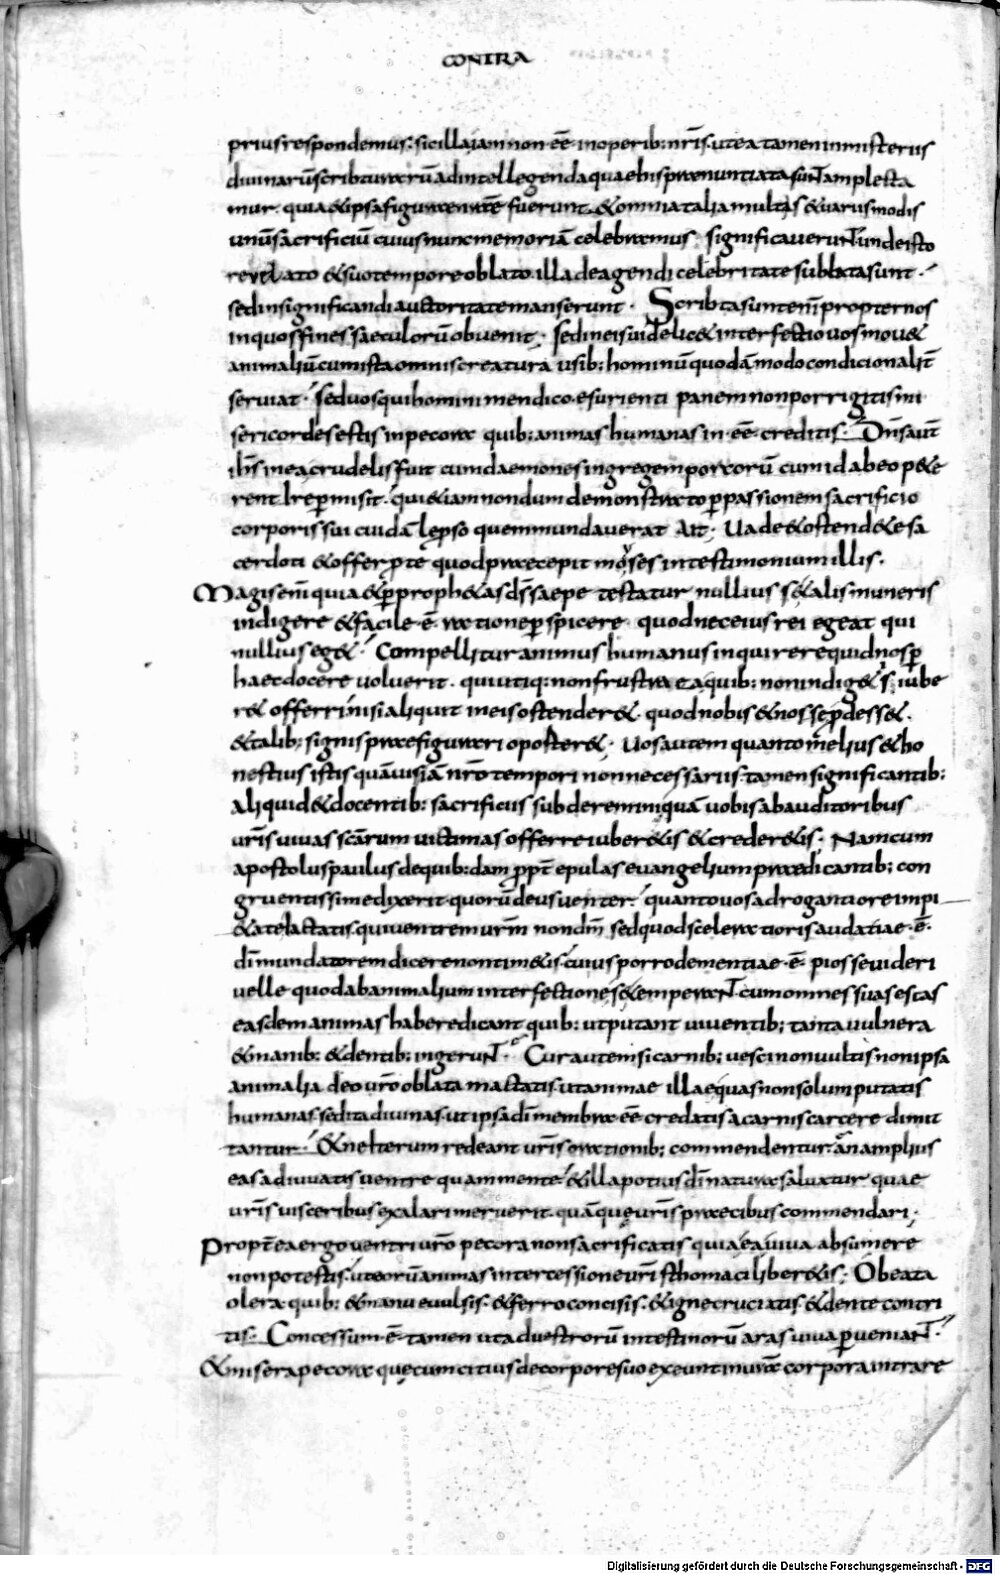 CONTRA
prius respondemus: sic illa iam non ēē in operib: nr̄is. ut ea tamen in misteriis
diuinarū scribturarū ad intellegenda quae his praenuntiata sunt amplecta
mur. quia & ipsa figurae nr̄ae fuerunt. & omnia talia multis & uariis modis
unū sacrificiū cuius nunc memoriā celebramus significauerunt unde isto
reuelato & suo tempore oblato. illa de agendi celebritate sublata sunt.
sed in significandi auctoritate manserunt. Scribta sunt enī propter nos
in quos fines saeculorū obuenit. sed in eis uidelic& interfectio uos mou&
animaliū cum ista omnis creatura usib: hominū quodā modo condicionalit̄
seruiat. sed uos qui homini mendico esurienti panem non porrigitis mi
sericordes estis in pecora quib: animas humanas in .ēē. creditis. Dn̄s aut̄
ih̄s in ea crudelis fuit cum daemones in gregem porcorū cum id ab eo p&e
rent ire permisit. qui &iam nondum demonstrato p passionem sacrificio
corporis sui cuidā lepso quem mundauerat ait. Uade & ostende te sa
cerdoti & offer p te quod praecepit moyses in testimonium illis.
Magis enī quia & p proph&as ds̄ saepe testatur nullius se talis muneris
indigere & facile .ē. ratione perspicere quod nec eius rei egeat qui
nullius eg&. Compellitur animus humanus inquirere quid nos p
haec docere uoluerit. qui utiq: non frustra ea quib: non indig&. s. iube
r& offerri nisi aliquit in eis ostender&. quod nobis & nosse pdess&.
& talib: signis praefigurari oporter&. Uos autem quanto melius & ho
nestius istis quāuis iā nr̄o tempori non necessariis. tamen significantib:
aliquid & docentib: sacrificiis subderemini quā uobis ab auditoribus
ur̄is uiuas escarum uictimas offerre iuber&is & creder&is. Nam cum
apostolus paulus de quib:dam ppt̄ epulas euangelium praedicantib: con
gruentissime dixerit quorū deus uenter. quanto uos adrogantiore impi
&ate iactatis qui uentrem urm̄ non dm̄ sed quod sceleratioris audatiae .ē.
dī mundatorem dicere non tim&is. cuius porro dementiae .ē. pios se uideri
uelle quod ab animalium interfectione se temperant cum omnes suas escas
easdem animas habere dicant quib: ut putant uiuentib: tanta uulnera
& manib: & dentib: ingerunt. Cur autem si carnib: uesci non uultis non ipsa
animalia deo uro oblata mactatis. ut animae illae quas non solum putatis
humanas. sed ita diuinas. ut ipsa dī membra ēē credatis a carnis carcere dimit
tantur. & ne iterum redeant uris orationib: commendentur. an amplius
eas adiuuatis uentre quam mente & illa potius dī natura saluatur quae
uris uisceribus exalari meruerit. quā quę uris praecibus commendari.
Propt̄ea ergo uentri uro pecora non sacrificatis quia ea uiua absumere
non potestis. ut eorū animas intercessione uri sthomaci liber&is. O beata
olera quib: & manu euulsis. & ferro concisis. & igne cruciatis. & dente contri
tis. Concessum .ē. tamen ut ad uestrorū intestinorū aras uiua p ueniant.
& misera pecora quę cum citius de corpore suo exeunt in ura corpora intrare
Digitalisierung gefördert durch die Deutsche Forschungsgemeinschaft - DFG